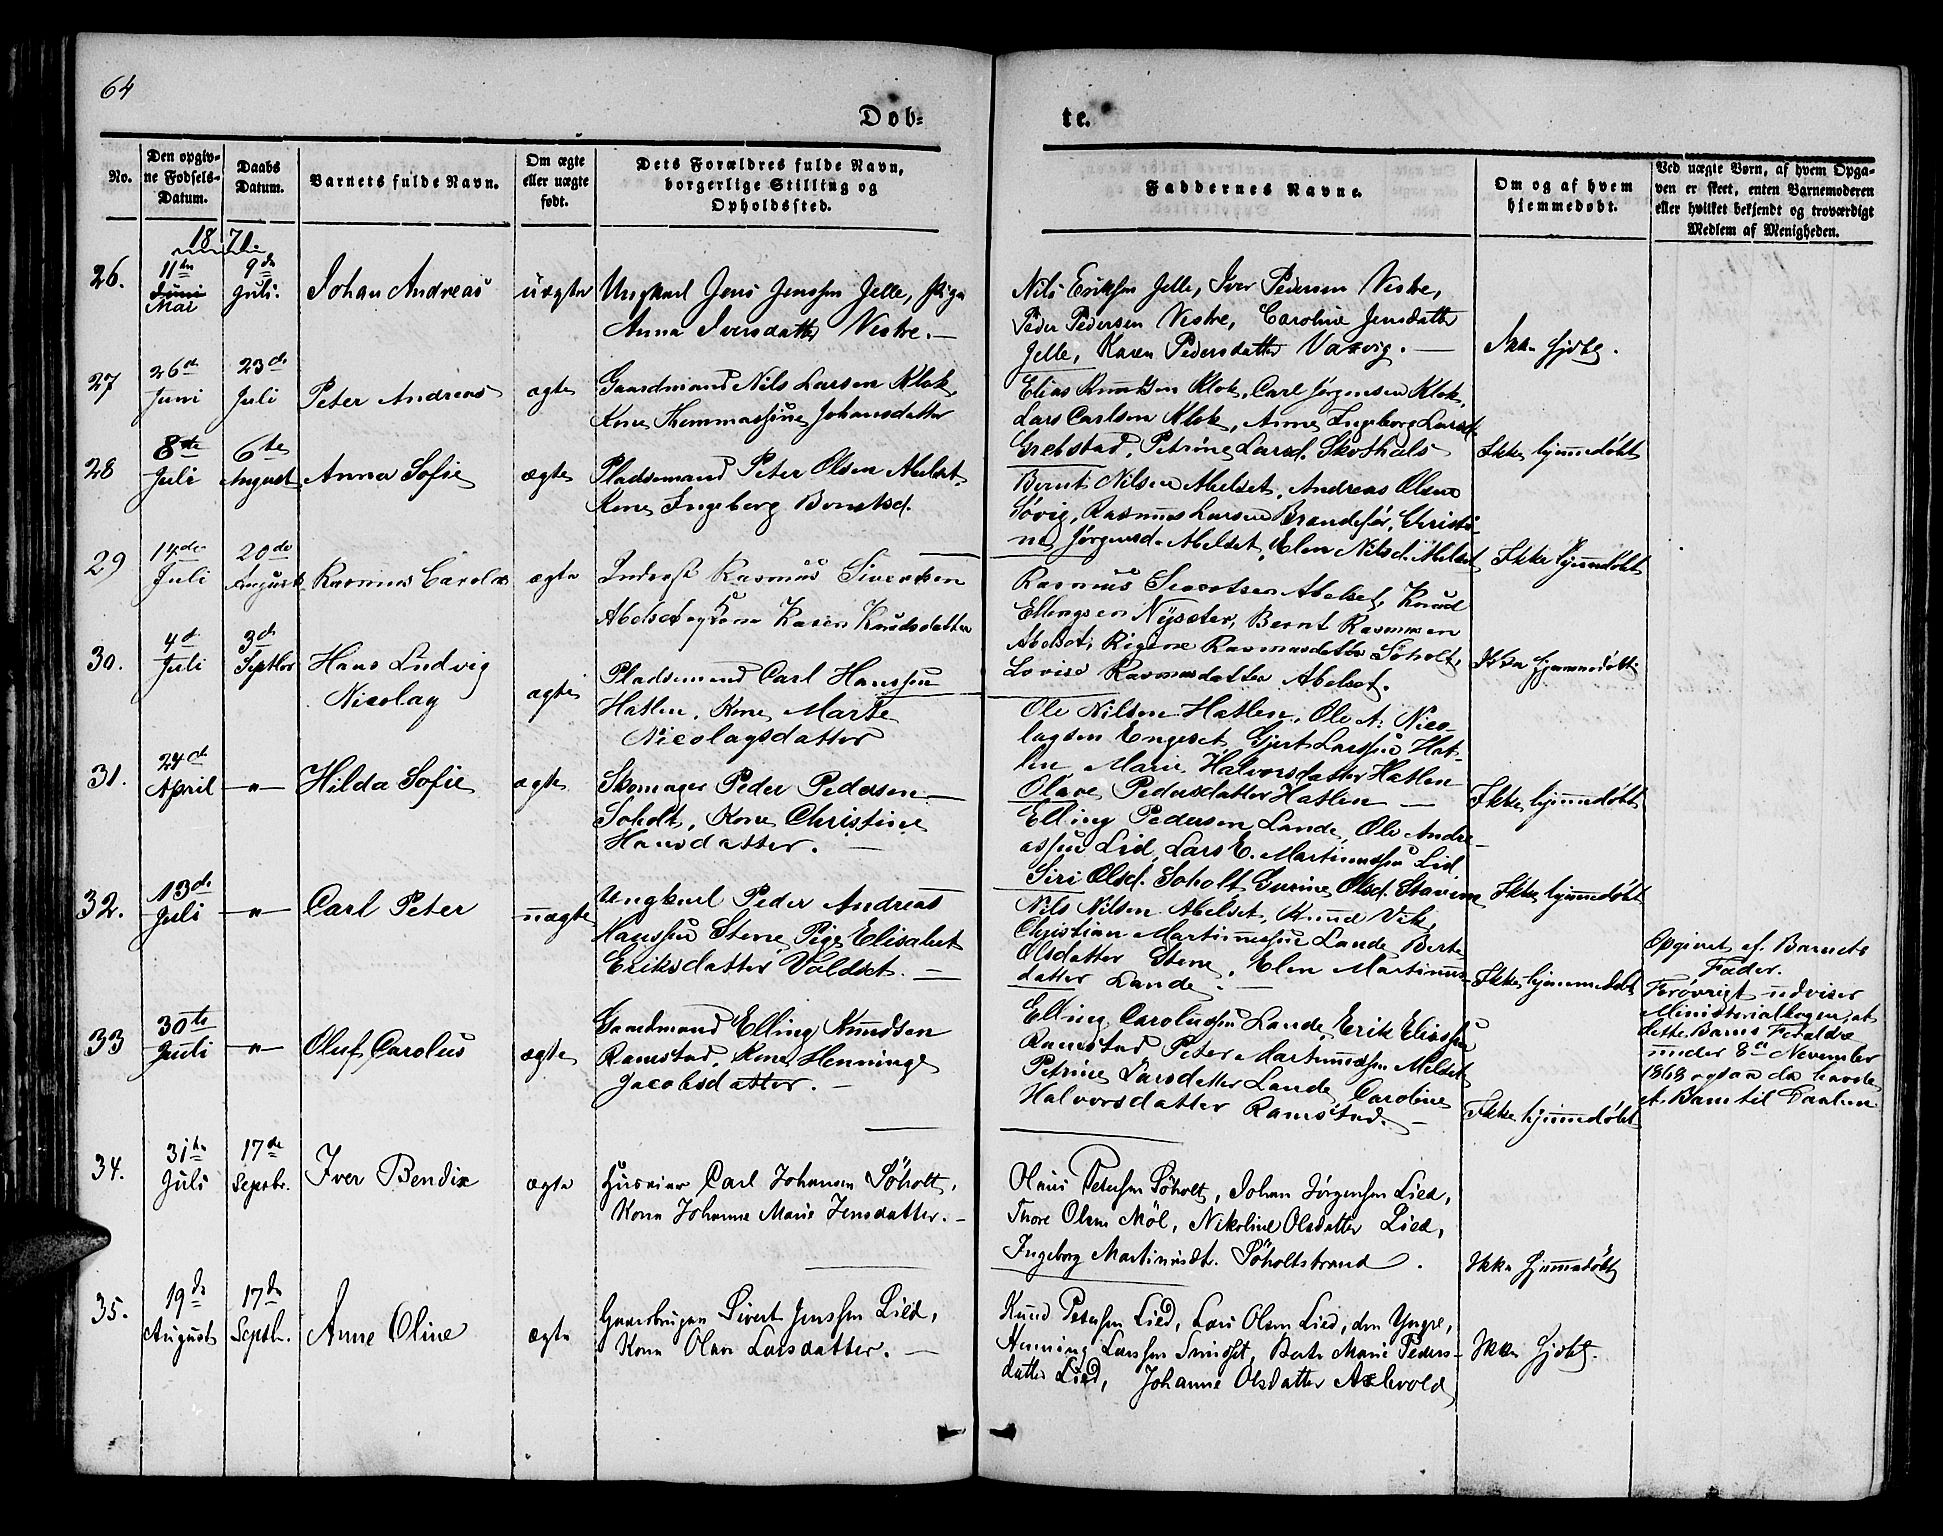 64
Dob=
te.
No.
Den opgiv-
ne Fødsels-
Datum.
Daabs
Datum.
Barnets fulde Navn.
Om ægte
eller uægte
født.
Dets Forældres fulde Navn,
borgerlige Stilling og
Opholdssted.
Faddernes Navne.
Om og af hvem
hjemmedøbt.
Ved uægte Børn, af hvem Opga-
ven er skeet, enten Barnemoderen
eller hvilket bekjendt og troværdigt
Medlem af Menigheden.
1871
26.
11te
Juni
Mai
9de
Juli.
Johan Andreas
uægte
Ungkarl Jens Jenssen Jelle, Pige
Anna Iversdatter Vestre. —
Nils Eriksen Jelle, Iver Pedersen Vestre,
Peder Pedersen Vestre, Caroline Jensdatter
Jelle, Karen Pedersdatter Vaxvig. —
Ikke hjdbt.
27
26de
Juni
23de
Juli
Peter Andreas
ægte
Gaardmand Nils Larsen Klok,
Kone Thommassine Johansdatter
Elias Knudsen Klok, Carl Jørgensen Klok,
Lars Carlsen Klok, Anne Ingeborg Larsd.
Grebstad, Petrine Larsd. Skothals
Ikke hjemmedøbt
28
8de
Juli
6te
August
Anna Sofie
ægte
Pladsemand Peter Olsen Abelset,
Kone Ingeborg Berntsd.
Bernt Nilsen Abelset, Andreas Olsen
Søvig, Rasmus Larsen Brandefør, Christi-
ne Jørgensd. Abelset, Elen Nilsd. Abelset
Ikke hjemmdøbt
29
14de
Juli
20de
August
Rasmus Carolus
ægte
Inderst Rasmus Sivertsen
Abelset og Kone Karen Knudsdatter
Rasmus Sivertsen Abelset, Knud
Ellingsen Nysæter, Bernt Rasmusen
Abelset, Rigene Rasmusdatter Søholt,
Lovise Rasmusdatter Abelset.
Ikke hjemmedøbt
30.
4de
Juli
3de
Septbr
Hans Ludvig
Nicolay
ægte
Pladsemand Carl Hanssen
Hatlen, Kone Marte
Nicolaysdatter
Ole Nilsen Hatlen, Ole A. Nico-
laysen Engeset, Gjert Larssen Hat-
len Marie Halvorsdatter Hatlen
Olave Pedersdatter Hatlen —
Ikke hjemmedøbt
31.
24de
April
— " —
Hilda Sofie
ægte
Skomager Peder Pedersen
Soholt, Kone Christine
Hansdatter. —
Elling Pedersen Lande, Ole Andre-
assen Lid, Lars E. Martinussen Lid
Siri Olsd. Soholt, Gurine Olsd. Stavem
Ikke hjemmedøbt
32.
13de
Juli
— " —
Carl Peter
uægte
Ungkarl Peder Andreas
Hanssen Stene, Pige Elisabet
Eriksdatter Valdset. —
Nils Nilsen Abelset, Knud Vik,
Christian Martinussen Lande, Berte
Olsdatter Stene, Elen Martinus-
datter Lande. —
Ikke hjemmedøbt
Opgivet af Barnets
Fader.
Forøvrigt udviser
Ministerialbogen, at
dette Barns Forældre
under 8de November
1868 ogsaa da havde
et Barn til Daaben
33
30te
Juli
— " —
Oluf Carolus
ægte
Gaardmand Elling Knudsen
Ramstad, Kone Henninge
Jacobsdatter. —
Elling Carolussen Lande, Erik Eliassen
Ramstad Peter Martinussen Melset
Petrine Larsdatter Lande, Caroline
Halvorsdatter Ramstad. —
Ikke hjemmedøbt
34.
31te
Juli
17de
Septbr.
Iver Bendix
ægte
Huseier Carl Johansen Søholt,
Kone Johanne Marie Jensdatter. —
Hans Petersen Søholt, Johan Jørgensen Lied,
Thore Olsen Møl, Nikoline Olsdatter Lied,
Ingeborg Martinusdt. Søholtstrand.
Ikke hjemmedøbt
35.
19de
August
17de
Septb.
Anne Oline
ægte
Gaardbruger Sivert Jenssen Lied,
Kone Olave Larsdatter. —
Knud Petersen Lied, Lars Olsen Lied, den Yngre,
Henning Larssen Smidset, Berte Marie Peders-
datter Lied, Johanne Olsdatter Axlevold
Ikke hjdbt.